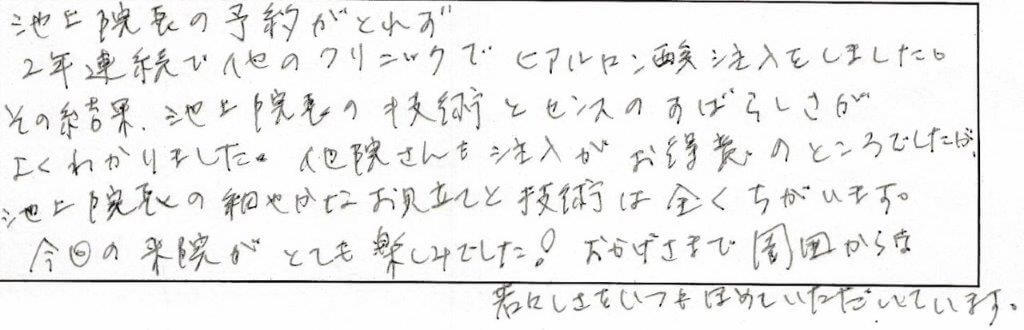 池上院長の予約がとれず
2年連続で他のクリニックで ヒアルロン酸注入をしました。
その結果、池上院長の技術とセンスのすばらしさが
よくわかりました。他院さんも注入がお得意のところでしたが、
池上院長の細やかなお見立てと技術は全くちがいます。
今回の来院がとても楽しみでした！おかげさまで周囲からは
若々しさをいつもほめていただいています。